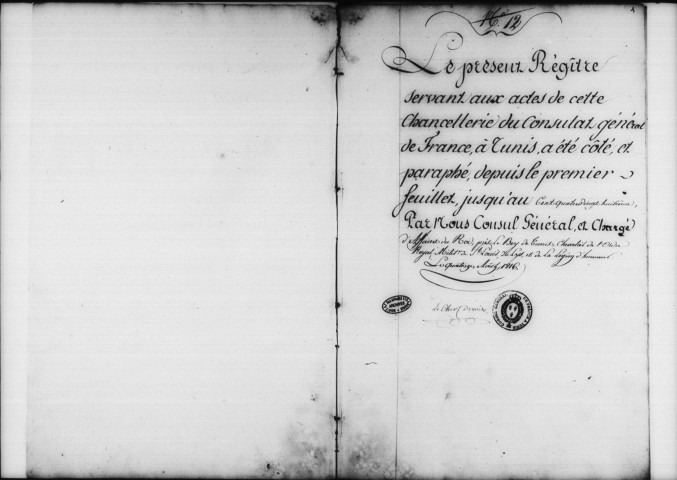 N.° 12
Le présent Régître
servant aux actes de cette
Chancellerie du Consulat général
de France, à Tunis, a été côté, et
paraphé, depuis le premier
feuillet, jusqu'au Cent quatre vingt huitième,
Par Nous Consul Général, et Chargé
d'Affaires du Roi, près le Bey de Tunis, Chevalier de l'Ordre
Royal Milit.re de S.t Louis, et de la Légion d'honneur
Le quatorze Août, 1816.